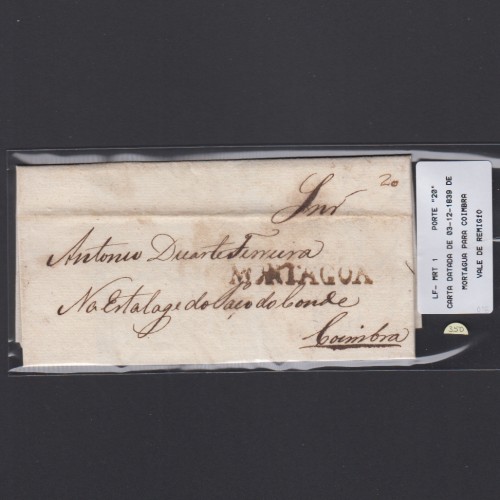 20
Snr
Antonio Duarte Ferreira
MORTAGOA
Na Estalage do Paço do Conde
Coimbra
LF- MRT 1 PORTE "20"
CARTA DATADA DE 03-12-1839 DE
MORTÁGUA PARA COIMBRA
VALE DE REMIGIO